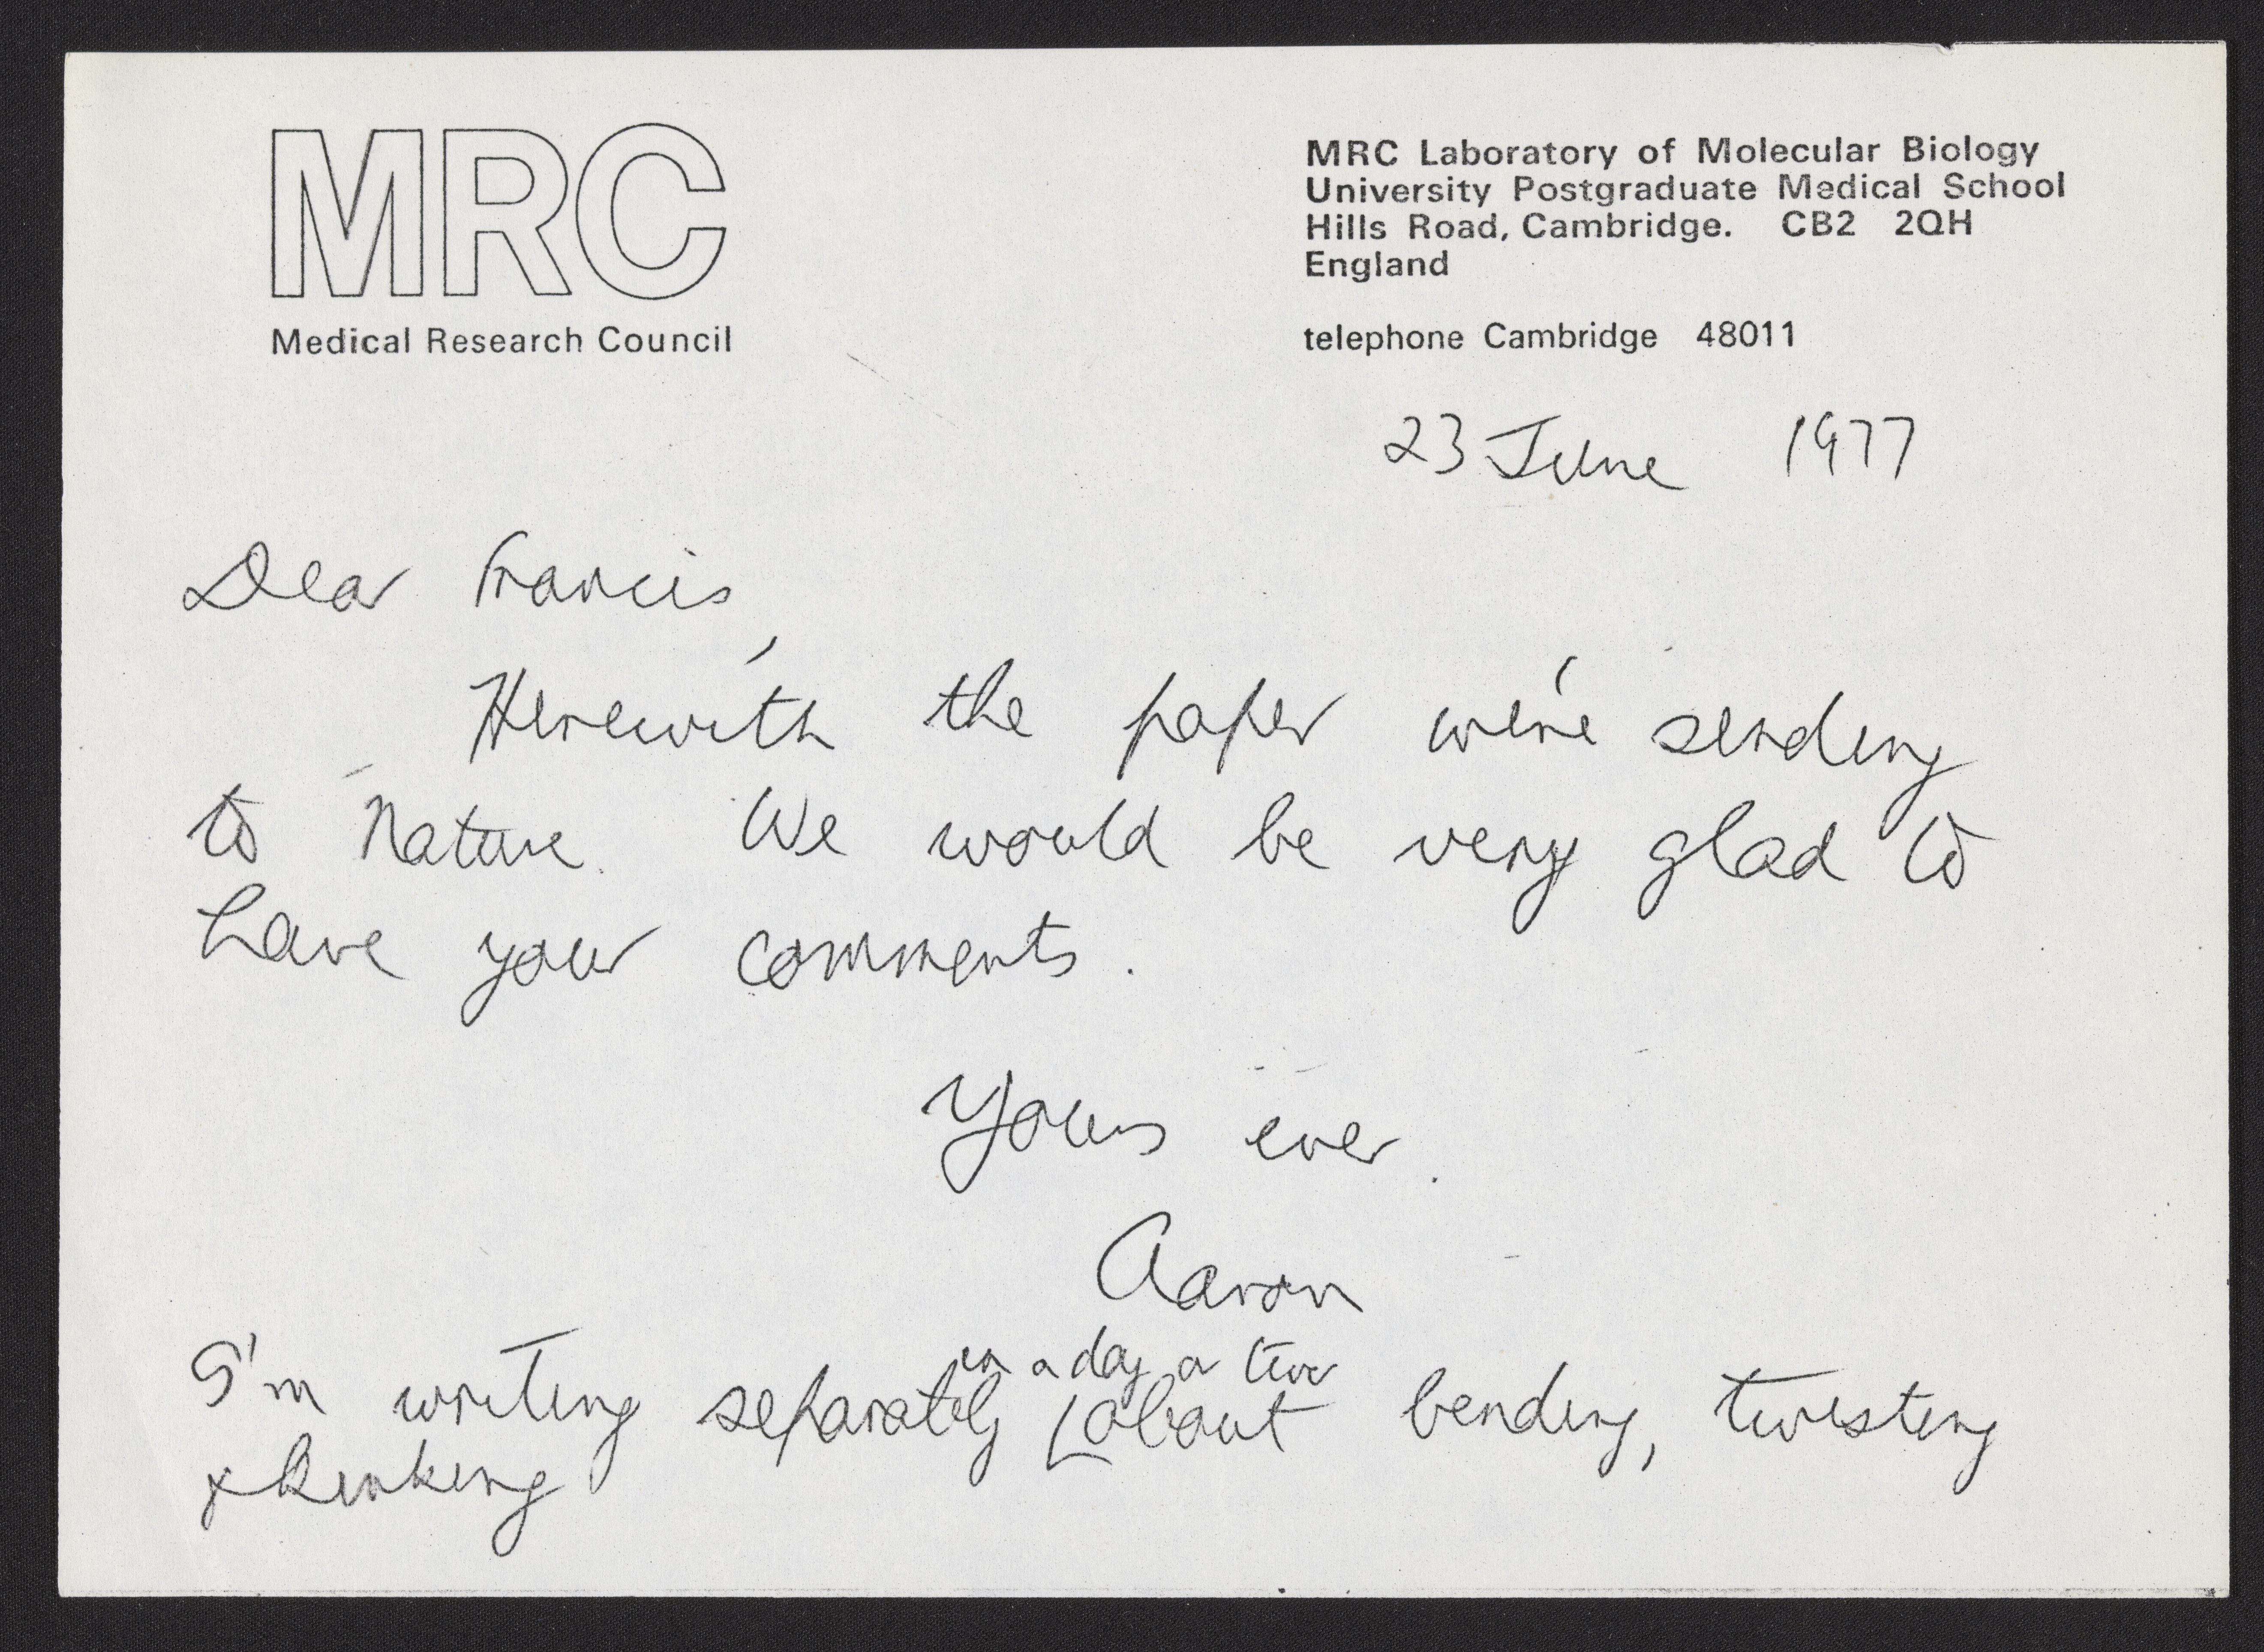 MRC
Medical Research Council
MRC Laboratory of Molecular Biology
University Postgraduate Medical School
Hills Road, Cambridge. CB2 2QH
England
telephone Cambridge 48011
23 June 1977
Dear Francis,
Herewith the paper we're sending
to Nature. We would be very glad to
have your comments.
Yours ever.
Aaron
in a day or two
I'm writing separately about bending, twisting
& kinking